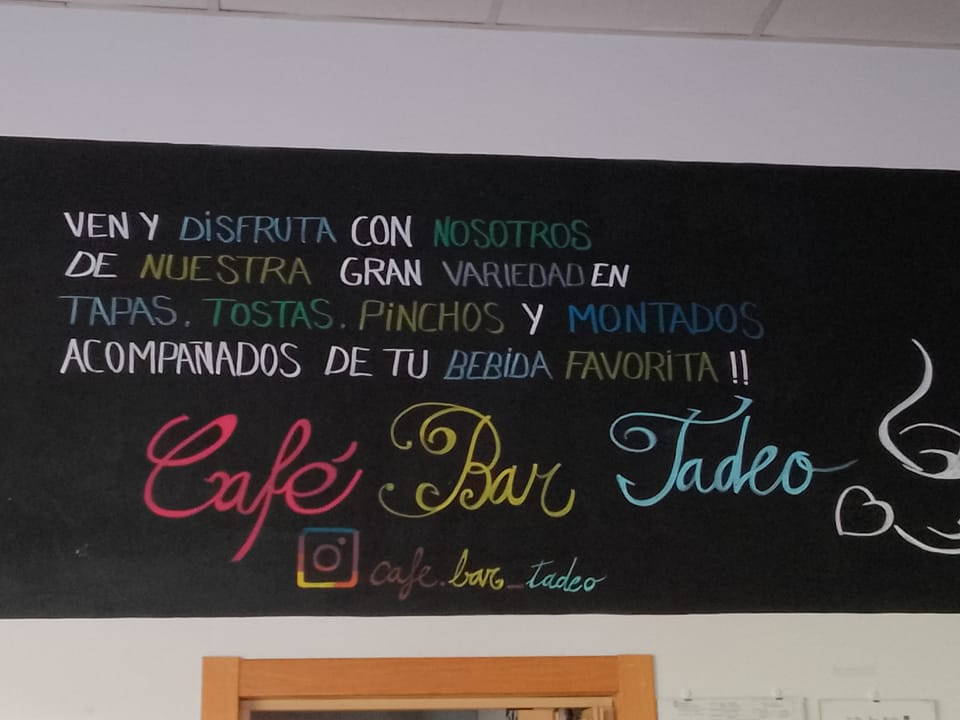 VEN Y DISFRUTA CON NOSOTROS
DE NUESTRA GRAN VARIEDAD EN
TAPAS. TOSTAS. PINCHOS Y MONTADOS
ACOMPAÑADOS DE TU BEBIDA FAVORITA !!
Café Bar Tadeo
cafe.bar_tadeo